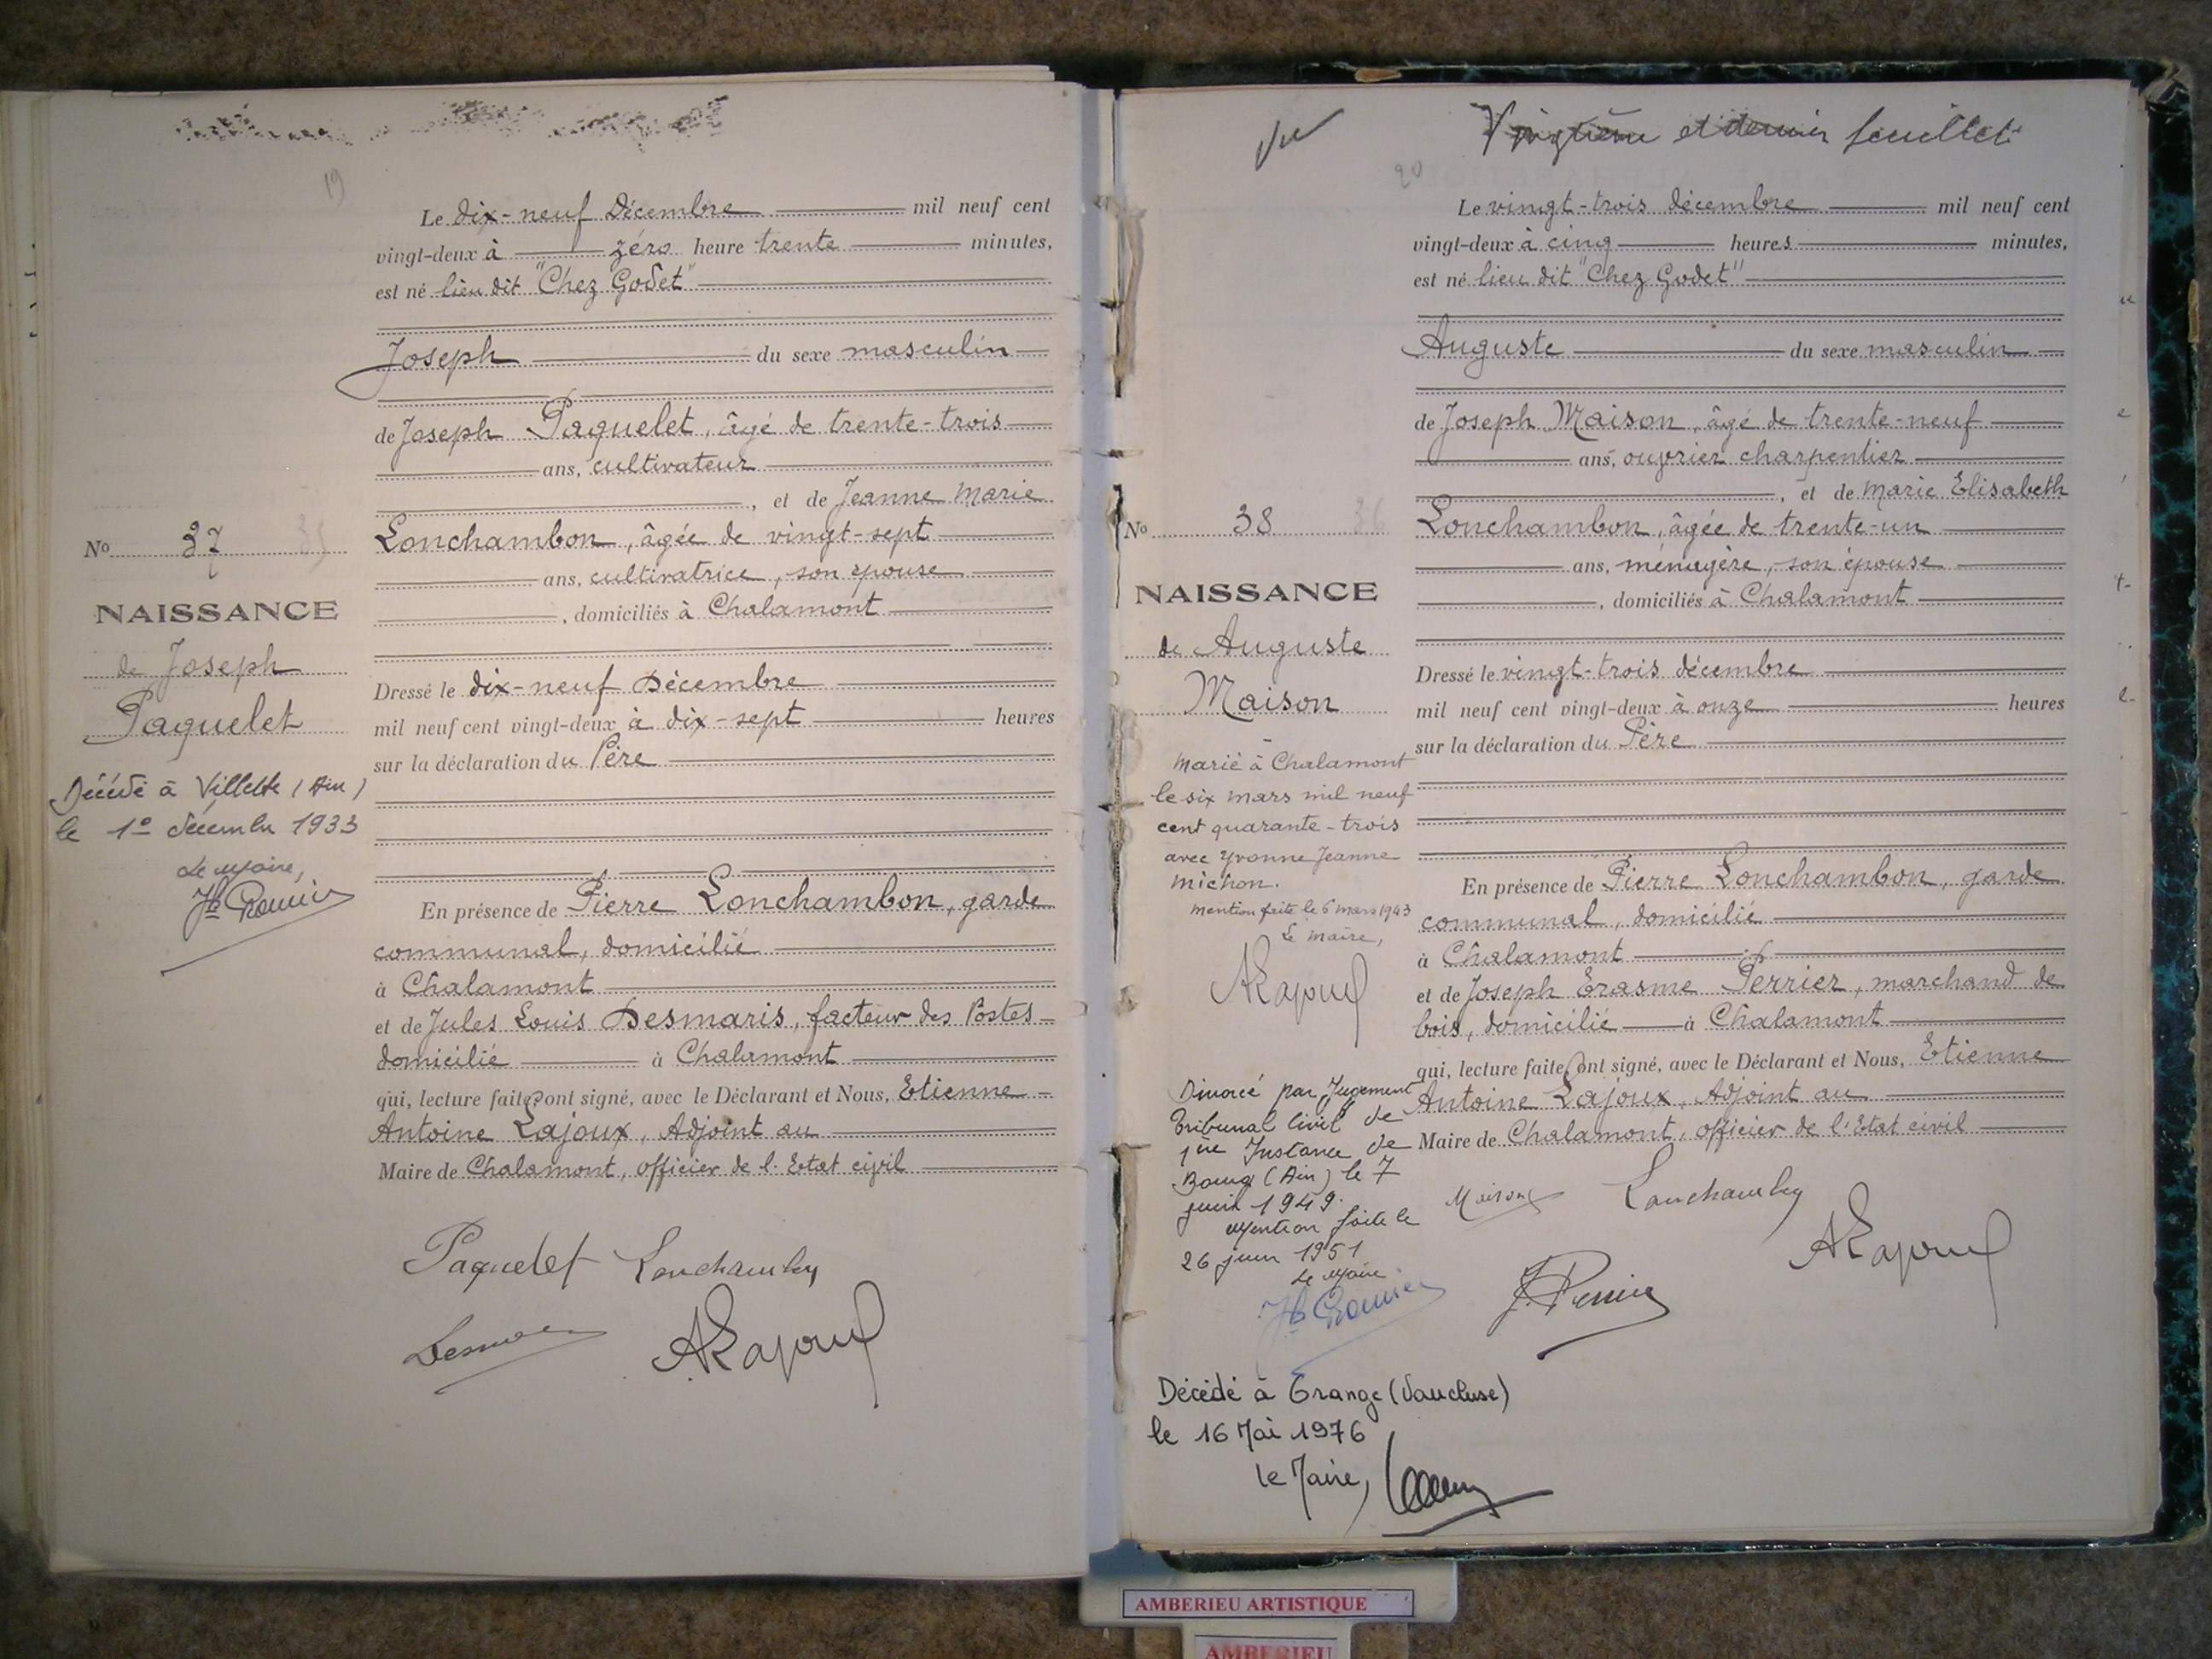 19
Le dix-neuf Décembre mil neuf cent
vingt-deux à zéro heure trente minutes,
est né lieu dit "Chez Godet"
Joseph du sexe masculin
de Joseph Paquelet, âgé de trente-trois
ans, cultivateur
, et de Jeanne Marie
Lonchambon, âgée de vingt-sept
ans, cultivatrice, son épouse
, domiciliés à Chalamont
Dressé le dix-neuf Décembre
mil neuf cent vingt-deux à dix-sept heures
sur la déclaration du Père
En présence de Pierre Lonchambon, garde
communal, domicilié
à Chalamont
et de Jules Louis Desmaris, facteur des Postes
domicilié à Chalamont
qui, lecture faite, ont signé, avec le Déclarant et Nous, Etienne
Antoine Lajoux, Adjoint au
Maire de Chalamont, officier de l'Etat civil
Paquelet Lonchambon
ALajoux
No 37 35
NAISSANCE
de Joseph
Paquelet
Décédé à Villette (Ain)
le 1er décembre 1933
Le Maire,
Vu
Vingtième et dernier feuillet
20
Le vingt-trois décembre mil neuf cent
vingt-deux à cinq heures minutes,
est né lieu dit "Chez Godet"
Auguste du sexe masculin
de Joseph Maison, âgé de trente-neuf
ans, ouvrier charpentier
, et de Marie Elisabeth
Lonchambon, âgée de trente-un
ans, ménagère, son épouse
, domiciliés à Chalamont
Dressé le vingt-trois décembre
mil neuf cent vingt-deux à onze heures
sur la déclaration du Père
En présence de Pierre Lonchambon, garde
communal, domicilié
à Chalamont
et de Joseph Erasme Perrier, marchand de
bois, domicilié à Chalamont
qui, lecture faite, ont signé, avec le Déclarant et Nous, Etienne
Antoine Lajoux, Adjoint au
Maire de Chalamont, officier de l'Etat civil
Maison Lonchambon
ALajoux
J. Perrier
No 38 36
NAISSANCE
de Auguste
Maison
Marié à Chalamont
le six mars mil neuf
cent quarante-trois
avec Yvonne Jeanne
Michon.
Mention faite le 6 mars 1943
Le Maire,
ALajoux
Divorcé par Jugement
Tribunal Civil de
1ère Instance de
Bourg (Ain) le 7
juin 1949.
Mention faite le
26 juin 1951
Le Maire
Décédé à Orange (Vaucluse)
le 16 Mai 1976
le Maire,
AMBERIEU ARTISTIQUE
AMBERIEU